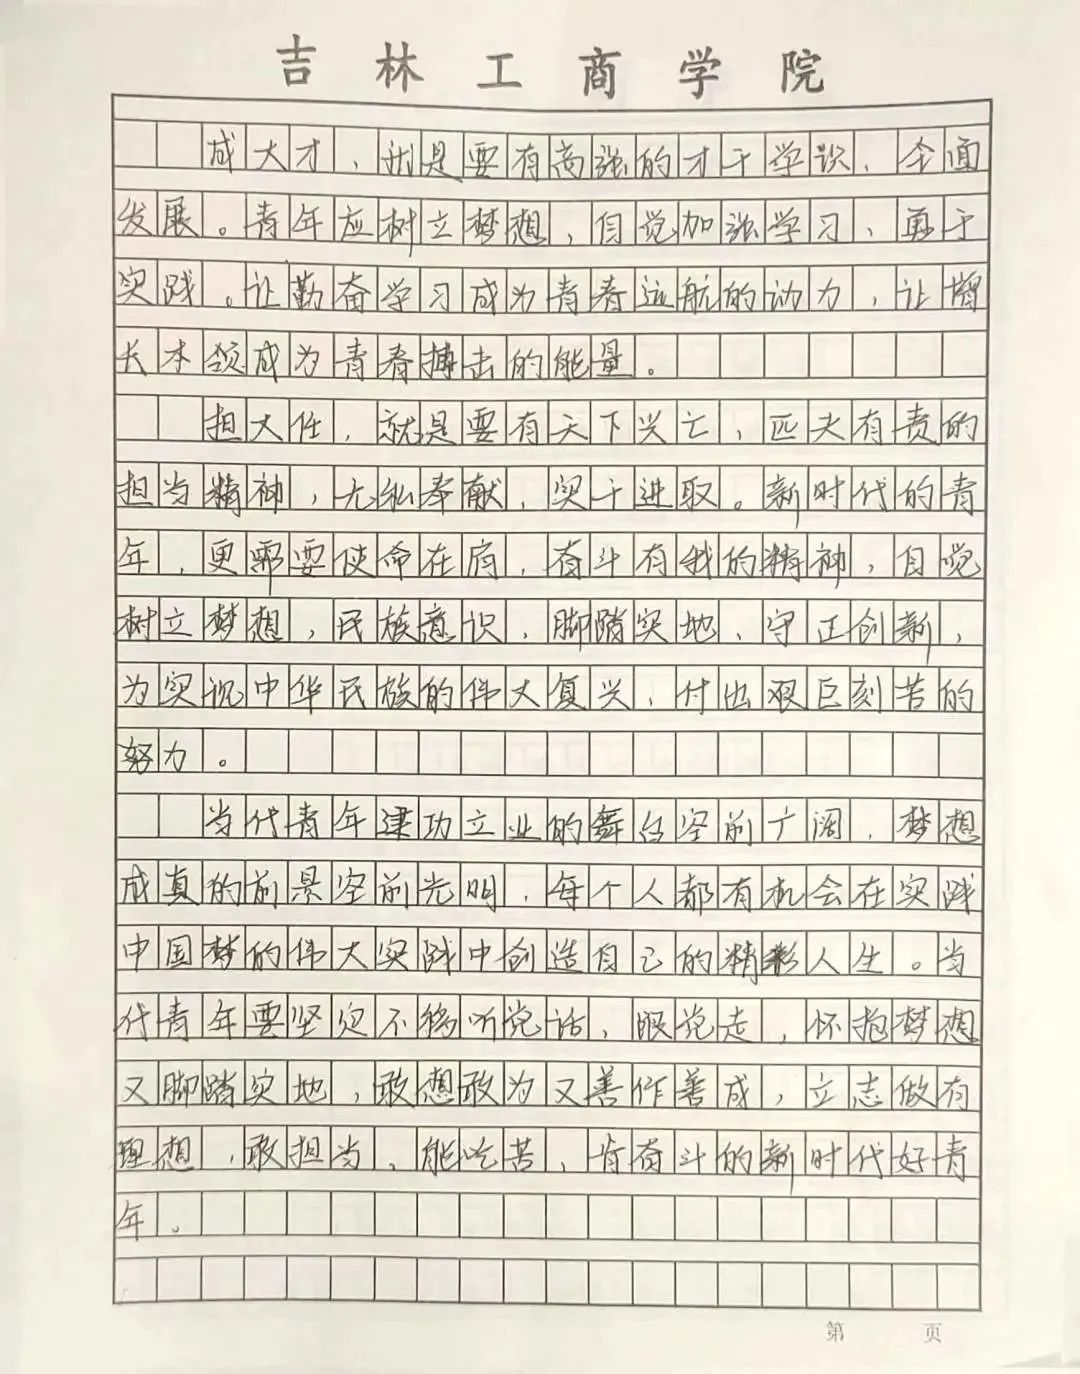 吉林工商学院
成大才，就是要有高强的才干学识、全面
发展。青年应树立梦想，自觉加强学习、勇于
实践。让勤奋学习成为青春远航的动力，让增
长本领成为青春搏击的能量。
担大任，就是要有天下兴亡，匹夫有责的
担当精神，无私奉献，实干进取。新时代的青
年，更需要使命在肩，奋斗有我的精神，自觉
树立梦想，民族意识，脚踏实地、守正创新，
为实现中华民族的伟大复兴，付出艰巨刻苦的
努力。
当代青年建功立业的舞台空前广阔，梦想
成真的前景空前光明，每个人都有机会在实践
中国梦的伟大实践中创造自己的精彩人生。当
代青年要坚定不移听党话，跟党走，怀抱梦想
又脚踏实地，敢想敢为又善作善成，立志做有
理想，敢担当，能吃苦，肯奋斗的新时代好青
年。
第 页